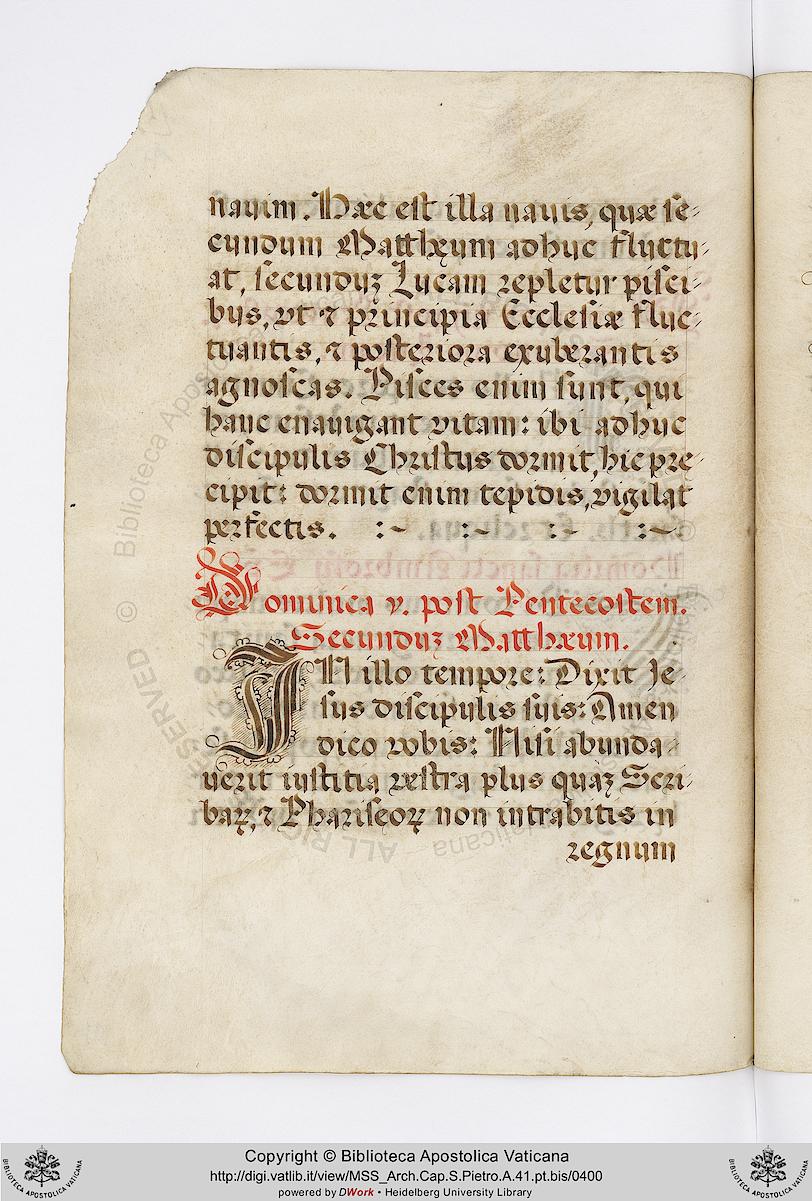 nauim. Hæc est illa nauis, quæ se-
cundum Matthæum adhuc fluctu-
at, secunduꝫ Lucam repletur pisci-
bus, vt ⁊ principia Ecclesiæ fluc-
tuantis, ⁊ posteriora exuberantis
agnoscas. Pisces enim sunt, qui
hanc enauigant vitam: ibi adhuc
discipulis Christus dormit, hic pre-
cipit: dormit enim tepidis, vigilat
perfectis. :~ :~ :~ :~
Dominica v. post Pentecostem.
Secunduꝫ Matthæum.
IN illo tempore: Dixit Je-
sus discipulis suis: Amen
dico vobis: Nisi abunda-
uerit iustitia vestra plus quàꝫ Scri-
baꝝ, ⁊ Phariseoꝝ non intrabitis in
regnum
© Biblioteca Apostolica Vaticana
ALL RIGHTS RESERVED
Copyright © Biblioteca Apostolica Vaticana
http://digi.vatlib.it/view/MSS_Arch.Cap.S.Pietro.A.41.pt.bis/0400
powered by DWork • Heidelberg University Library